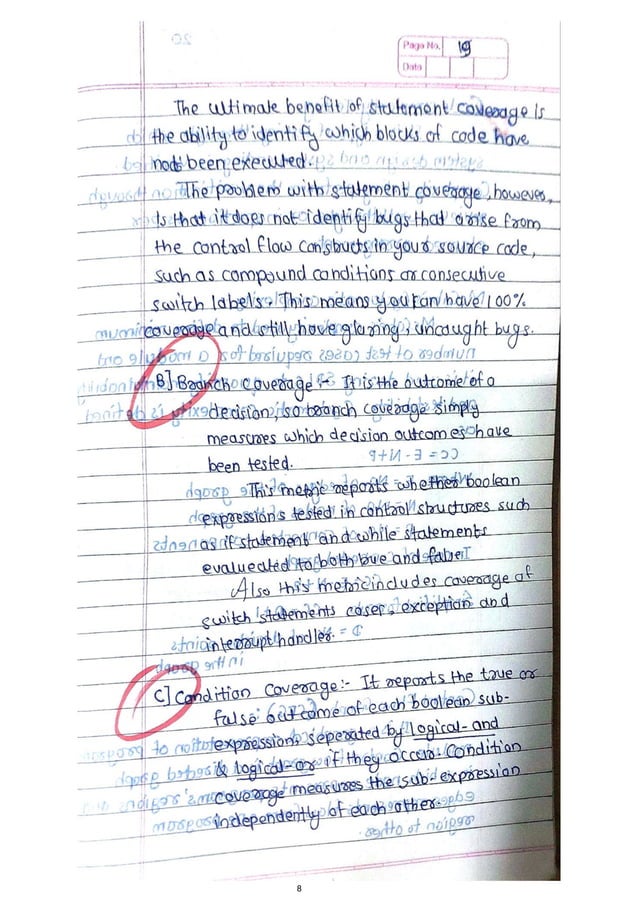 Page No. 19
Date
The ultimate benefit of statement coverage is
the ability to identify which blocks of code have
not been executed.
The problem with statement coverage, however,
Is that it does not identify bugs that arise from
the control flow constructs in your source code,
such as compound conditions or consecutive
switch labels. This means you can have 100%
coverage and still have glaring, uncaught bugs.
B] Branch Coverage :- It is the outcome of a
decision, so branch coverage simply
measures which decision outcomes have
been tested.
This metric reports whether boolean
expressions tested in control structures such
as if statement and while statements
evalueated to both true and false.
Also this metric includes coverage of
switch statements cases, exception and
interrupt handler.
C] Condition Coverage:- It reports the true or
false outcome of each boolean sub-
expression, seperated by logical-and
& logical-or if they occur. Condition
coverage measures the sub expression
independently of each other.
8